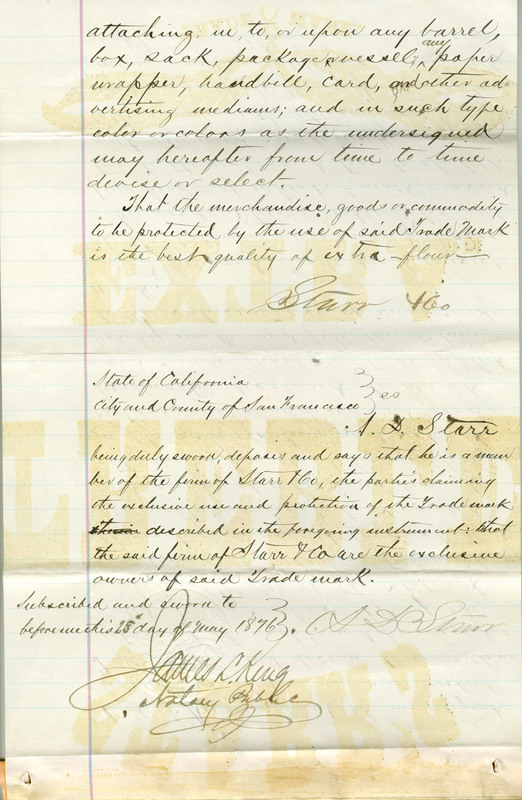 attaching in, to, or upon any barrel,
box, sack, package, vessel, any paper
wrapper, handbill, card, or other ad-
vertising mediums; and in such type
color or colors as the undersigned
may hereafter from time to time
devise or select.
That the merchandise, goods or commodity
to be protected by the use of said Trade Mark
is the best quality of extra flour
Starr & Co
State of California
City and County of San Francisco } ss
A. D. Starr
being duly sworn, deposes and says that he is a mem
ber of the firm of Starr & Co, the parties claiming
the exclusive use and protection of the Trade mark
described in the foregoing instrument: that
the said firm of Starr & Co are the exclusive
owners of said Trade mark.
Subscribed and sworn to
before me this 25th day of May 1876 }. A D Starr
James L. King
Notary Public
EXTRA
STARR'S